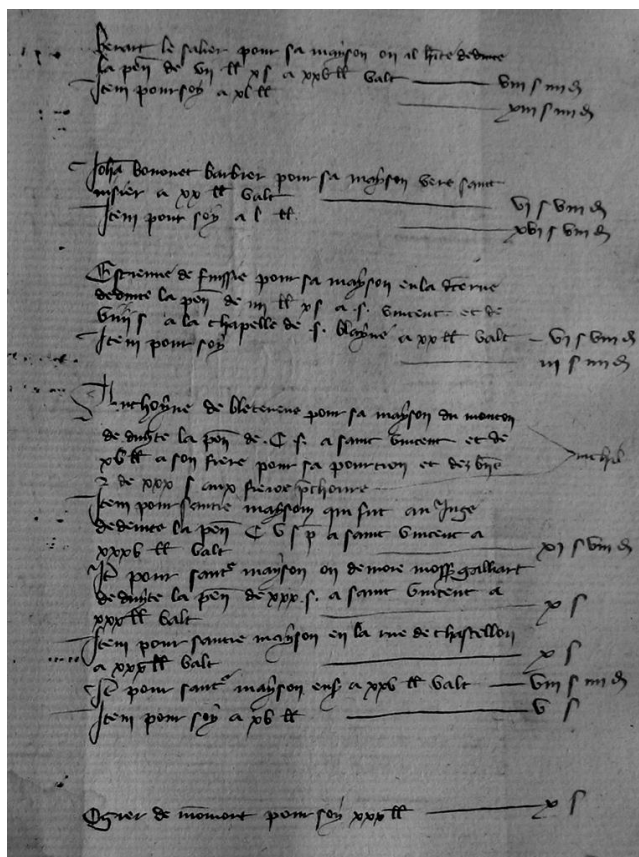 le salier pour sa mayson ou il deducte
la pen de vii ll xs a xxv ll valt viii s iiii d
Item pour soy a xl ll xiii s iiii d
Joha bononet barbier pour sa mayson vers sanct
nisier a xx ll valt vi s viii d
Item pour soy a l ll xvi s viii d
Estienne de pour sa mayson en la
deducte la pen de iiii ll xs a s. vincent et de
viii s a la chapelle de s. blayne a xx ll valt vi s viii d
Item pour soy iii s iiii d
Anthoyne de bleterens pour sa mayson du mouton
deduyte la pen de C s. a sainct vincent et de
xv ll a son frere pour sa pourtion et
de xxx s aux freres
Item pour sautre mayson qui fut au Juge
deducte la pen C v s p a sainct vincent a
xxxv ll valt xi s viii d
It pour saut mayson ou demore moss galliart
deduyte la pen de xxx s. a sainct vincent a
xxx ll valt x s
Item pour sautre mayson en la rue de chastellon
a xxx ll valt x s
It pour saut mayson a xxv ll valt viii s iiii d
Item pour soy a xv ll v s
Ogier de pour soy xxx ll x s